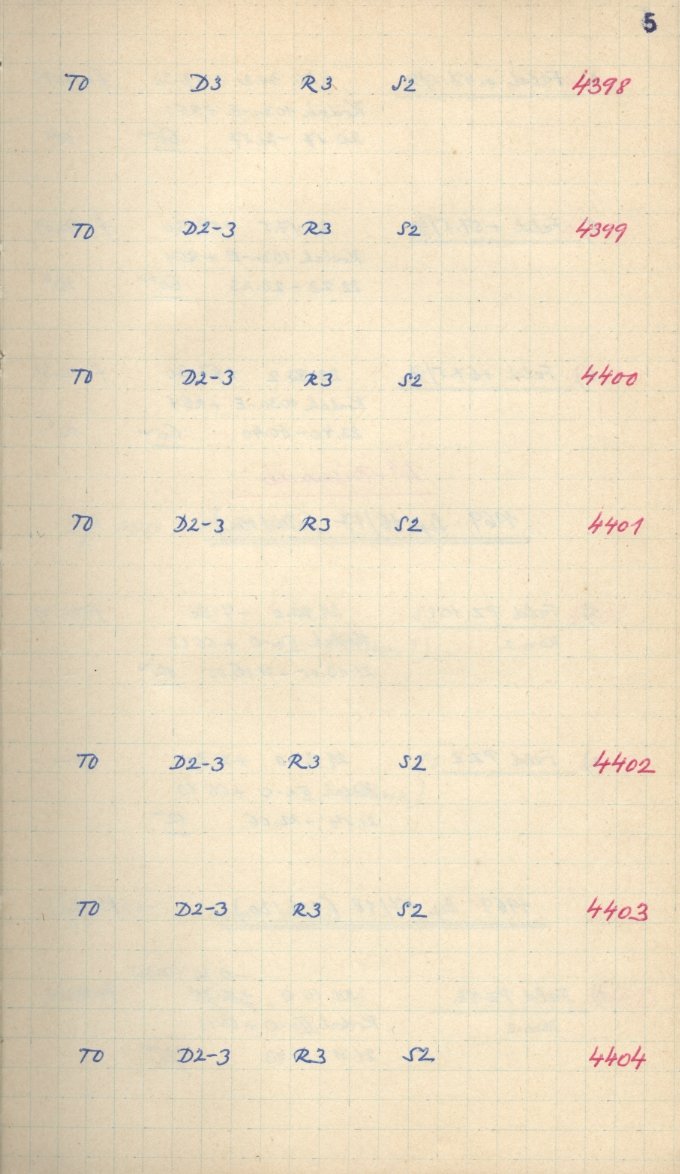 5
TO D3 R3 S2 4398
TO D2-3 R3 S2 4399
TO D2-3 R3 S2 4400
TO D2-3 R3 S2 4401
TO D2-3 R3 S2 4402
TO D2-3 R3 S2 4403
TO D2-3 R3 S2 4404